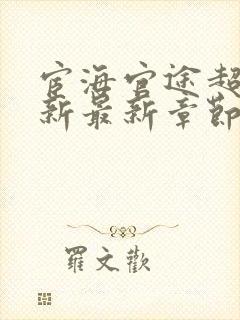 宦海官途超
新最新章節
羅文歡